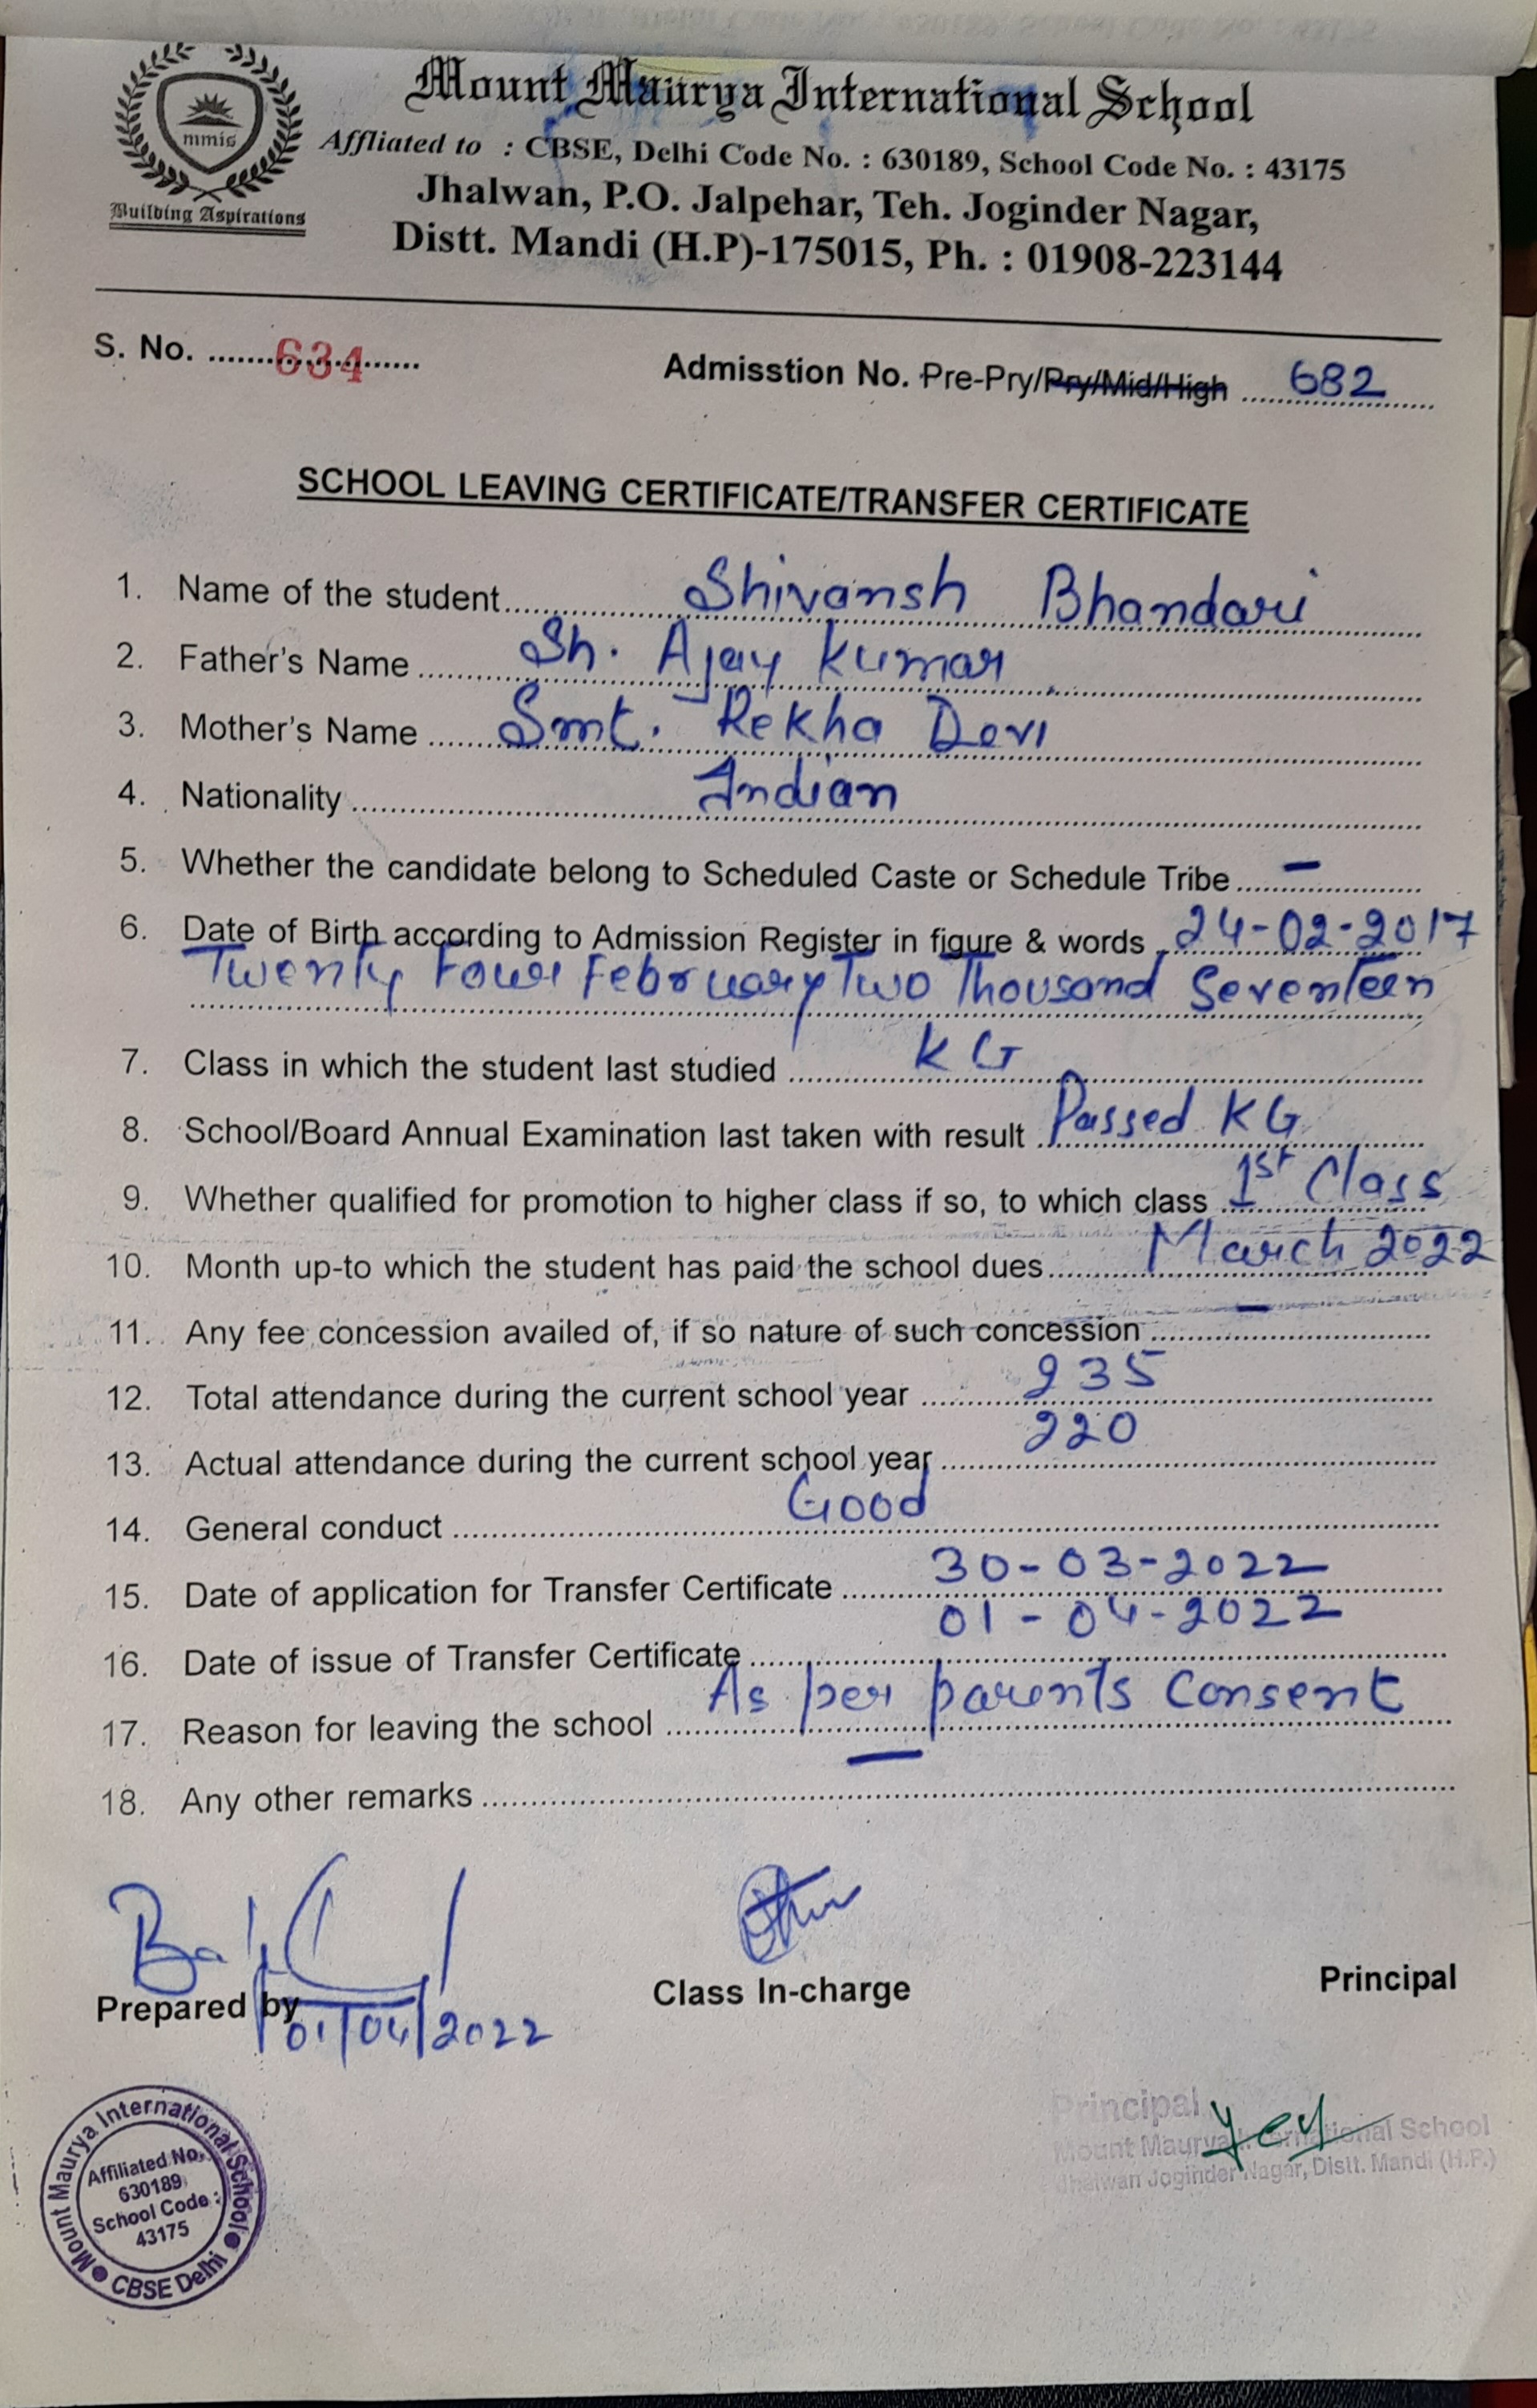 mmis
Building Aspirations
Mount Maurya International School
Affliated to : CBSE, Delhi Code No. : 630189, School Code No. : 43175
Jhalwan, P.O. Jalpehar, Teh. Joginder Nagar,
Distt. Mandi (H.P)-175015, Ph. : 01908-223144
S. No. ........634........
Admisstion No. Pre-Pry/Pry/Mid/High ....682....
SCHOOL LEAVING CERTIFICATE/TRANSFER CERTIFICATE
1. Name of the student.... Shivansh Bhandari
2. Father's Name .... Sh. Ajay Kumar
3. Mother's Name .... Smt. Rekha Devi
4. Nationality .... Indian
5. Whether the candidate belong to Scheduled Caste or Schedule Tribe .... –
6. Date of Birth according to Admission Register in figure & words 24-02-2017
Twenty Four February Two Thousand Seventeen
7. Class in which the student last studied .... KG
8. School/Board Annual Examination last taken with result .... Passed KG
9. Whether qualified for promotion to higher class if so, to which class .... 1st Class
10. Month up-to which the student has paid the school dues.... March 2022
11. Any fee concession availed of, if so nature of such concession .... –
12. Total attendance during the current school year .... 235
13. Actual attendance during the current school year .... 220
14. General conduct .... Good
15. Date of application for Transfer Certificate .... 30-03-2022
16. Date of issue of Transfer Certificate .... 01-04-2022
17. Reason for leaving the school .... As per parents Consent
18. Any other remarks .... –
Prepared by
01/04/2022
Class In-charge
Principal
Principal
Mount Maurya International School
Jhalwan Joginder Nagar, Distt. Mandi (H.P.)
Mount Maurya International School
CBSE Delhi
Affiliated No.
630189
School Code :
43175